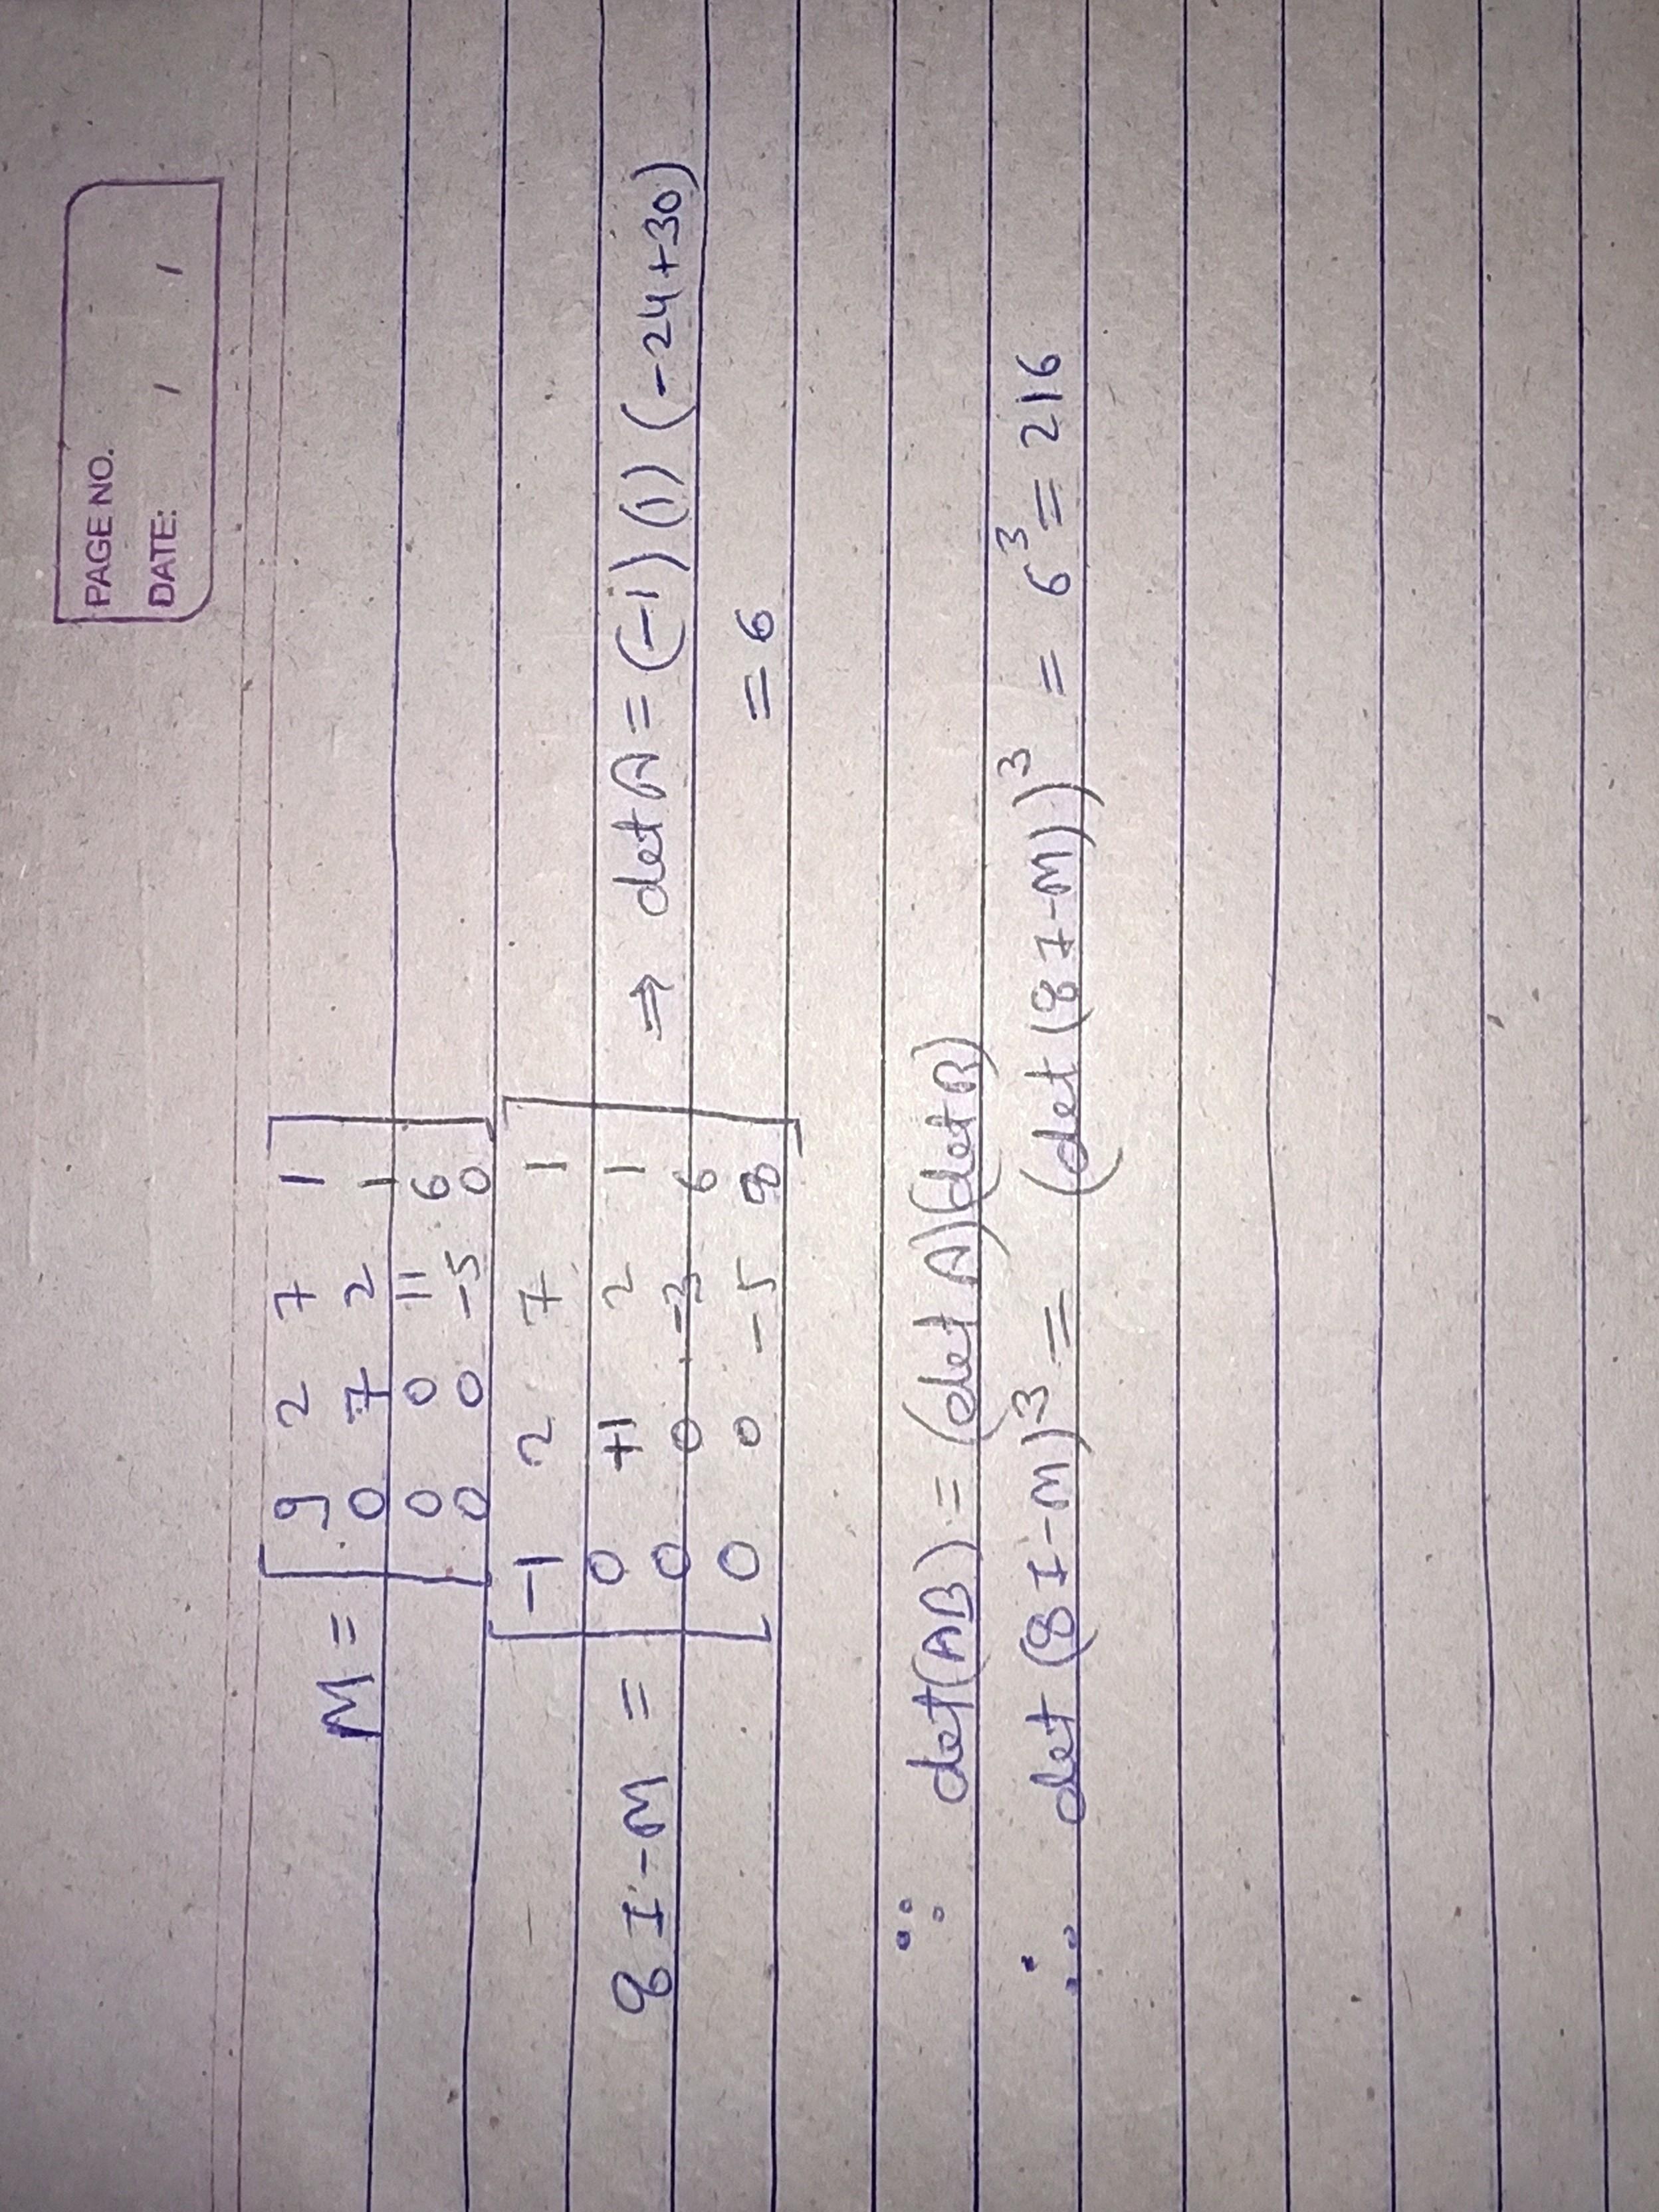 PAGE NO.
DATE: / /
M = [ 9 2 7 1
0 7 2 1
0 0 11 6
0 0 -5 0 ]
8 I - M = [ -1 2 7 1
0 +1 2 1
0 0 -3 6
0 0 -5 8 ] ⇒ det A = (-1) (1) (-24+30)
= 6
∵ det(AB) = (det A)(det B)
∴ det (8 I - M)³ = (det (8 I - M))³ = 6³ = 216